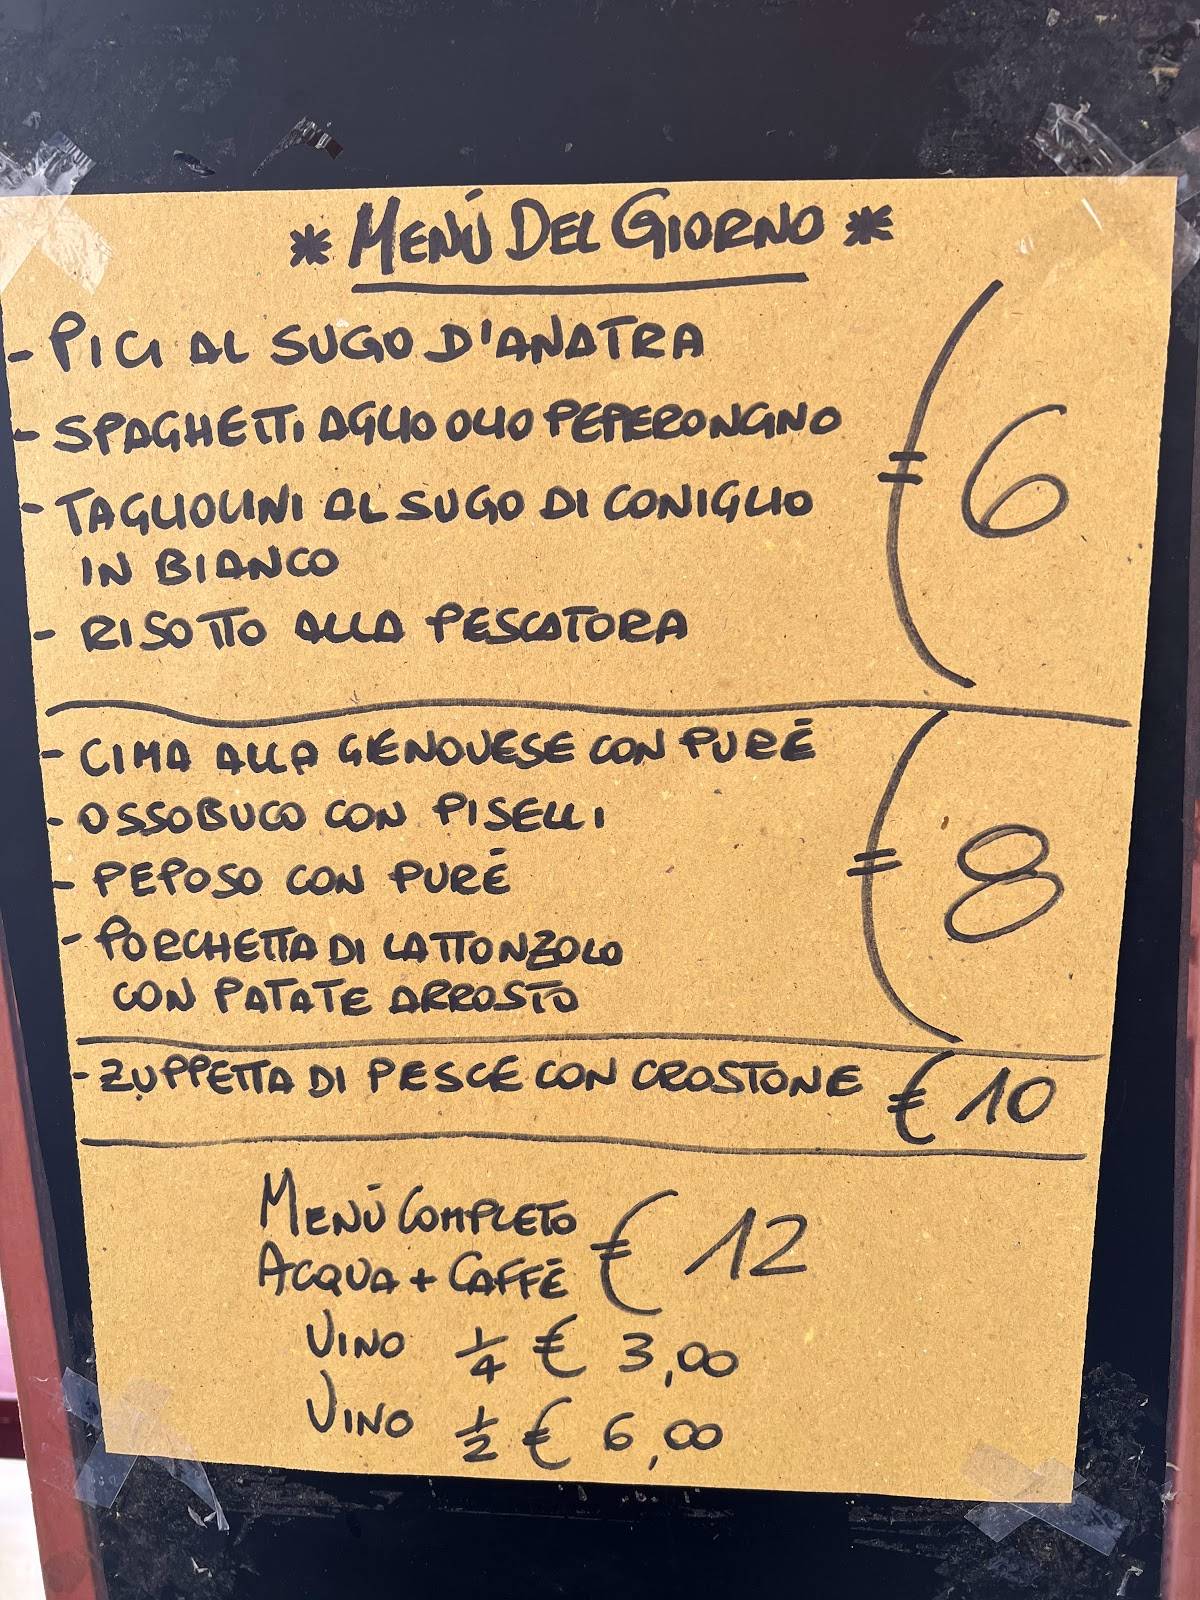 * MENÙ DEL GIORNO *
- PICI AL SUGO D'ANATRA
- SPAGHETTI AGLIO OLIO PEPERONGNO
- TAGLIOLINI AL SUGO DI CONIGLIO
IN BIANCO
- RISOTTO ALLA PESCATORA
€ 6
- CIMA ALLA GENOVESE CON PURÉ
- OSSOBUCO CON PISELLI
- PEPOSO CON PURÉ
- PORCHETTA DI LATTONZOLO
CON PATATE ARROSTO
€ 8
- ZUPPETTA DI PESCE CON CROSTONE € 10
MENÙ COMPLETO
ACQUA + CAFFÉ € 12
VINO 1/4 € 3,00
VINO 1/2 € 6,00